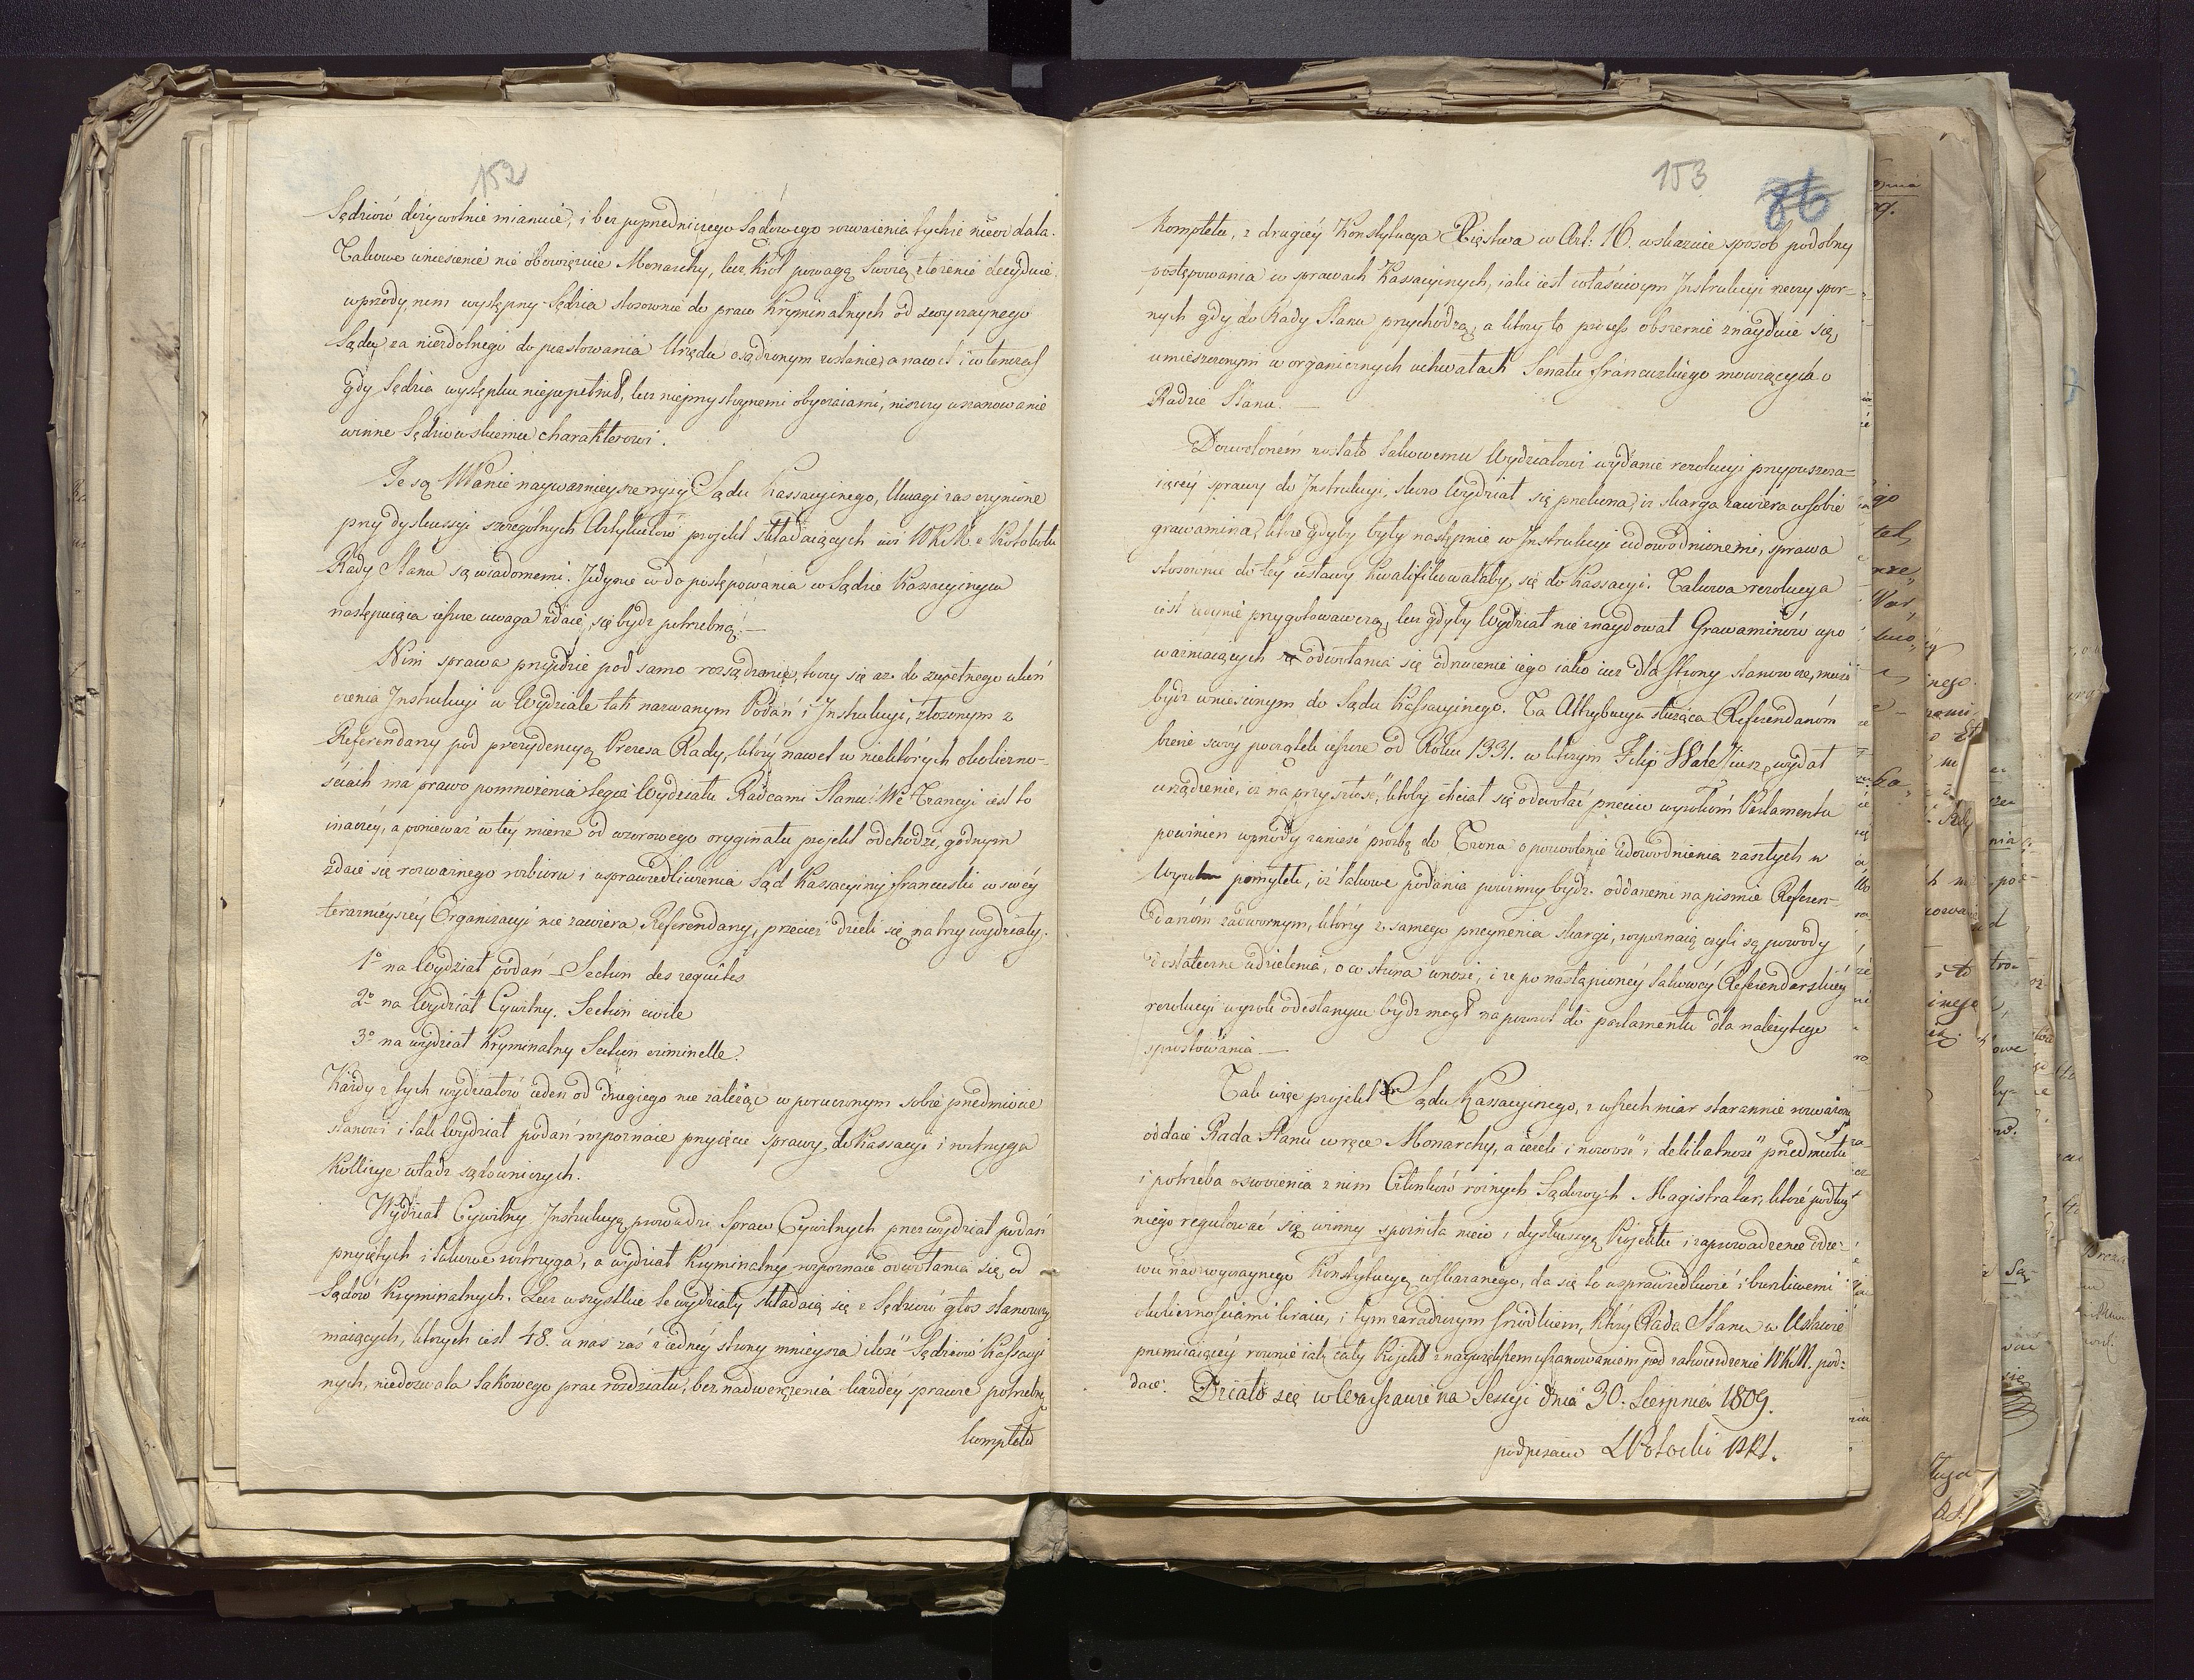 152
Sędziów dożywotnie mianuie, i bez poprzedniczego Sądowego rozważenia tychże nieoddala.
Takowe wniesienie nie obowięzuie Monarchy, lecz Król powagą Swoią złożenie decyduie,
wprzódy, nim występny Sędzia stosownie do praw Kryminalnych od zwyczaynego
Sądu za niezdolnego do piastowania Urzędu osądzonym zostanie, a nawet i w tenczas
gdy Sędzia występku niepopełnił, lecz nieprzystoynemi obyczaiami, niszczy uszanowanie
winne Sędziowskiemu charakterowi.
Te są Wanie naywaznieysze rysy Sądu Kassacyinego, Uwagi zas czynione
przy dyskussyi szczególnych Artykułów projekt składaiących są WKM z Protokułu
Rady Stanu są wiadomemi. Jedynie co do postępowania w Sądzie Kassacyinym
następuiąca ieszcze uwaga zdaie się bydz potrzebną:—
Nim sprawa przyidzie pod samo rozsądzenie, toczy się az do zupełnego ukoń
czenia Instrukcyi w Wydziale tak nazwanym Podań i Instrukcyi, złozonym z
Referendarzy pod prezydencyą Prezesa Rady, który nawet w niektórych okoliczno-
ściach ma prawo pomnożenia tegoż Wydziału Radcami Stanu. We Francyi iest to
inaczey, a ponieważ w tey mierze od wzorowego oryginału projekt odchodzi, godnym
zdaie się rozważnego rozbioru i usprawiedliwienia Sąd Kassacyiny francuski w swéy
teraznieyszéy Organizacyi nie zawiera Referendarzy, przecież dzieli się na trzy wydziały.
1o na Wydział podań — Section des requêtes
2o na Wydział Cywilny. Section civile
3o na wydział Kryminalny Section criminelle.
Każdy z tych wydziałów ieden od drugiego nie zależąc w poruczonym sobie przedmiocie
stanowi i tak Wydział podań rozpoznaie przyięcie sprawy do Kassacyi i roztrzyga
Kollizye władz sądowniczych.
Wydział Cywilny Instrukcyą prowadzi Spraw Cywilnych przez wydział podań
przyiętych i takowe roztrzyga, a wydział Kryminalny rozpoznaie odwołania się od
Sądów Kryminalnych. Lecz wszystkie te wydziały składaią się z Sędziów głos stanowczy
maiących, których iest 48. u nas zaś z iednéy strony mnieysza ilość Sędziów Kassacyi
nych, niedozwala takowego prac rozdziału, bez nadwerężenia każdéy sprawie potrzebnego
kompletu
153
86
Kompletu, z drugiéy Konstytucya Xięstwa w Art: 16. wskazuie sposob podobny
postępowania w sprawach Kassacyinych, iaki iest właściwym Instrukcyi rzeczy spor-
nych gdy do Rady Stanu przychodzą, a który to process obszernie znayduie się
umieszczonym w organicznych uchwałach Senatu francuzkiego mowiących o
Radzie Stanu.—
Dozwolonem zostało takowemu Wydziałowi wydanie rezolucyi przypuszcza-
iącéy sprawy do Instrukcyi, skoro Wydział się przekona, iz skarga zawiera w sobie
grawamina, które gdyby były następnie w Instrukcyi udowodnionemi, sprawa
stosównie do téy ustawy kwalifikowałaby się do Kassacyi. Takowa rezolucya
iest iedynie przygotowawczą, lecz gdyby Wydział nie znaydował Grawaminów upo
ważniaiących odwołania się odrzucenie iego iako iuz dla Strony stanowcze, musi
bydz wniesionym do Sądu Kassacyinego. Ta Attrybucya słuząca Referendarzom
bierze swóy początek ieszcze od Roku 1331. w którym Filip Waleziusz, wydał
urządzenie, iz na przyszłość, ktoby chciał się odwołać przeciw wyrokom Parlamentu
powinien wprzódy zanieść prozbę do Trona o pozwolenie udowodnienia zaszłych w
Wyroku pomyłek, iz takowe podania powinny bydz oddanemi na pismie Referen-
darzóm nadwornym, którzy z samego przeyrzenia skargi, rozpoznaią czyli są powody
dostateczne udzielenia, o co strona wnosi, i ze po nastąpionéy takowéy Referendarskiéy
rezolucyi wyrok odesłanym bydz mogł na powrót do parlamentu dla należytego
sprostowania.—
Tak więc projekt Sądu Kassacyinego, z wszech miar starannie rozważony
oddaie Rada Stanu w ręce Monarchy, a ieżeli i nowość i delikatność przedmiotu
i potrzeba oswoienia z nim Członków róznych Sądowych Magistratur, które podług
niego regulować się winny spoźniła nieco i dyskussyą Projektu i zaprowadzenie dzie-
wu nadzwyczaynego Konstytucyą wskazanego, da się to usprawiedliwić i burzliwemi
okolicznościami kraiu, i tym zaradczym środkiem, który Rada Stanu w Ustawie
przemiiaiącéy rownie iak cały Projekt z naygłębszem uszanowaniem pod zatwierdzenie WKM. pod-
daie. Działo się w Warszawie na Sessyi dnia 30. Sierpnia 1809.
podpisano S Potocki PRS.